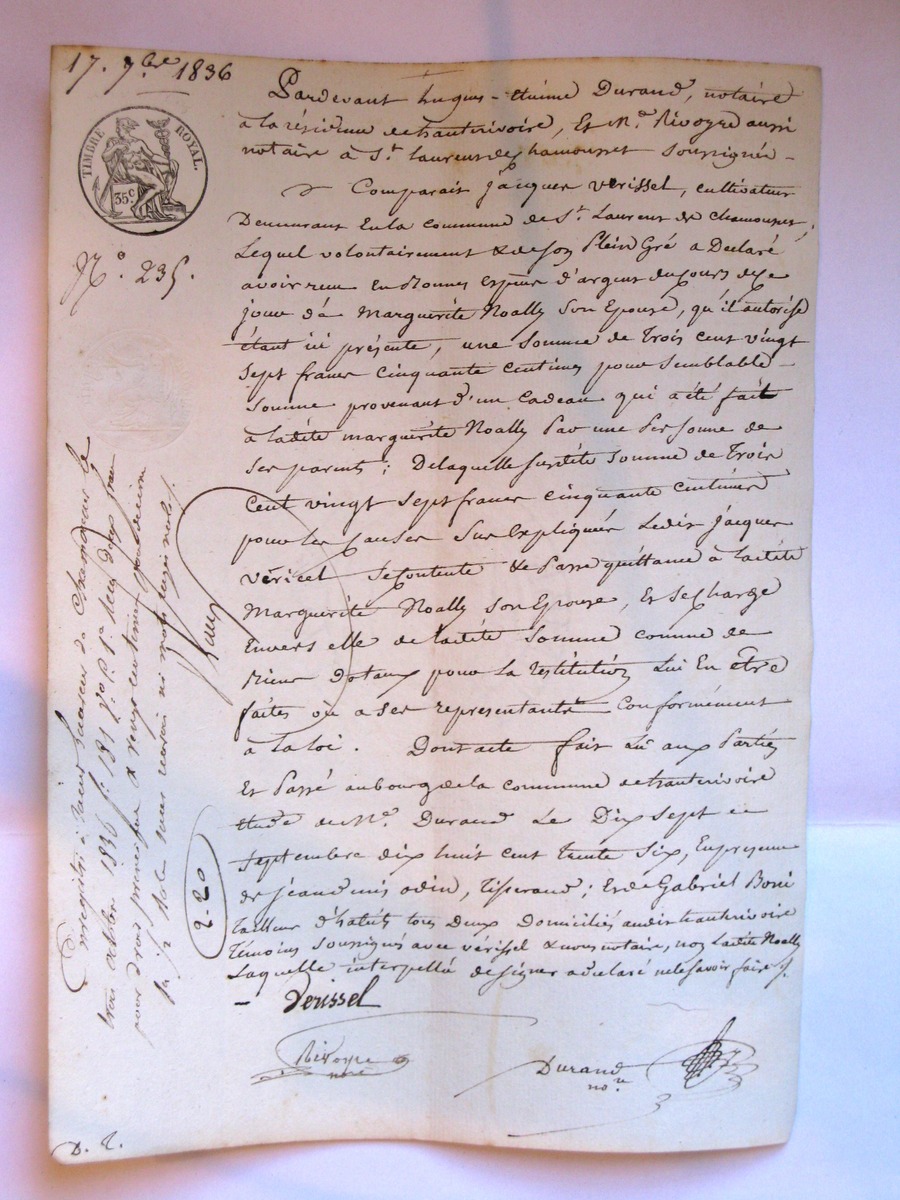 17. 7bre 1836
TIMBRE ROYAL.
35c
No. 235.
Pardevant hugues-étienne Durand, notaire
à la résidence de hauterivoire, Et Me. Rivoyre aussi
notaire à St. Laurent de chamousset soussignés –
Comparait Jacques vérissel, cultivateur
Demeurant En la commune de St. Laurent de chamousset,
Lequel volontairement & de son Plein Gré a Declaré
avoir reçu En Bonnes Espèces d'argent du cours de ce
jour dè Marguerite Noally Son Epouse, qu'il autorise
étant ici présente, une Somme de Trois cent vingt
sept francs cinquante centimes pour semblable –
Somme provenant d'un Cadeau qui a été fait
à ladite marguerite Noally Par une Personne de
Ses parents; De laquelle susdite Somme de Trois
Cent vingt sept francs cinquante centimes
pour les Causes Sus Expliquées Ledit Jacques
véricel se Contente & Passe quittance à ladite
Marguerite Noally Son Epouse, Et se Charge
Envers elle de ladite Somme comme de
Biens dotaux pour La restitution Lui En être
faites où a Ses représentants Conformément
à la loi. Dont acte fait Lu aux Parties
Et Passé au bourg de la commune de hauterivoire
étude de Me. Durand Le Dix sept
septembre dix huit cent trente Six, En présence
de jean denis odin, Tisserand; Et de Gabriel Boni
tailleur d'habits tous Deux Domiciliés audit hauterivoire
Témoins Soussignés avec vérissel & nous notaire, non Ladite Noally
Laquelle interpellé de signer a déclaré ne le savoir faire ./.
Verissel
Rivoyre
nore
Durand
nore
Enregistré à Saint Laurent de Chamousset le
trois octobre 1836 fo. 181 Vo. Reçu deux francs
pour droit principal & vingt centimes pour décime
2-20
D. R.